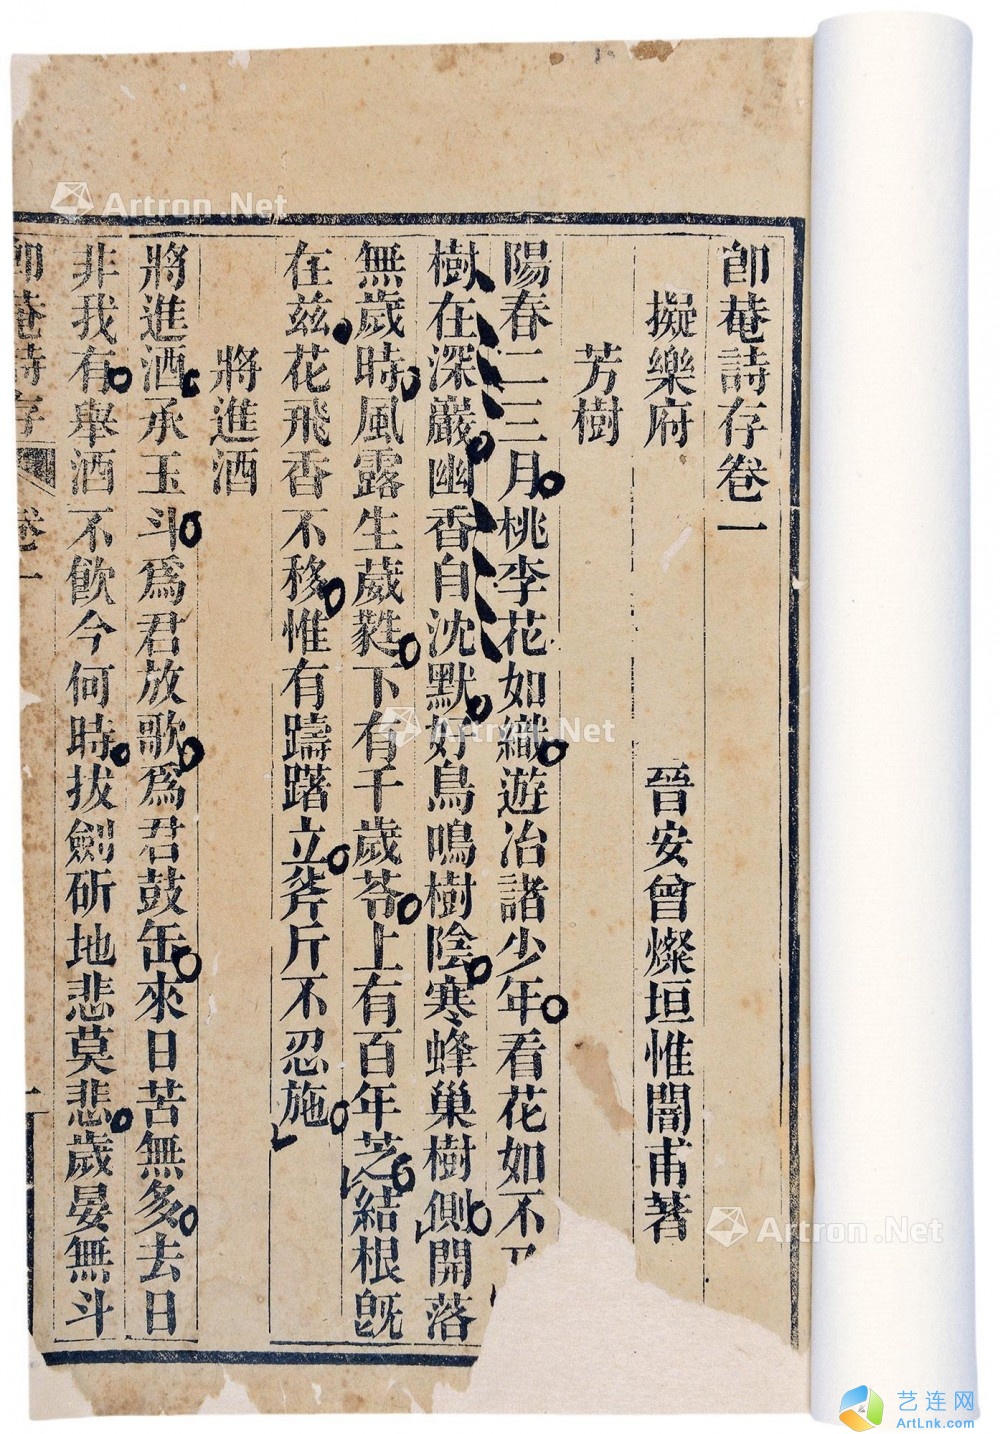 卽菴詩存卷一
擬樂府
晉安曾燦垣惟闇甫著
芳樹
陽春二三月桃李花如織遊冶諸少年看花如不
樹在深巖幽香自沈默好鳥鳴樹陰寒蜂巢樹側開落
無歲時風露生葳蕤下有千歲苓上有百年芝結根旣
在茲花飛香不移惟有躊躇立斧斤不忍施
將進酒
將進酒承玉斗爲君放歌爲君鼓缶來日苦無多去日
非我有舉酒不飲今何時拔劍斫地悲莫悲歲晏無斗
卽菴詩存 卷一
Artron.Net
Artron.Net
Artron.Net
艺连网
ArtLnk.com